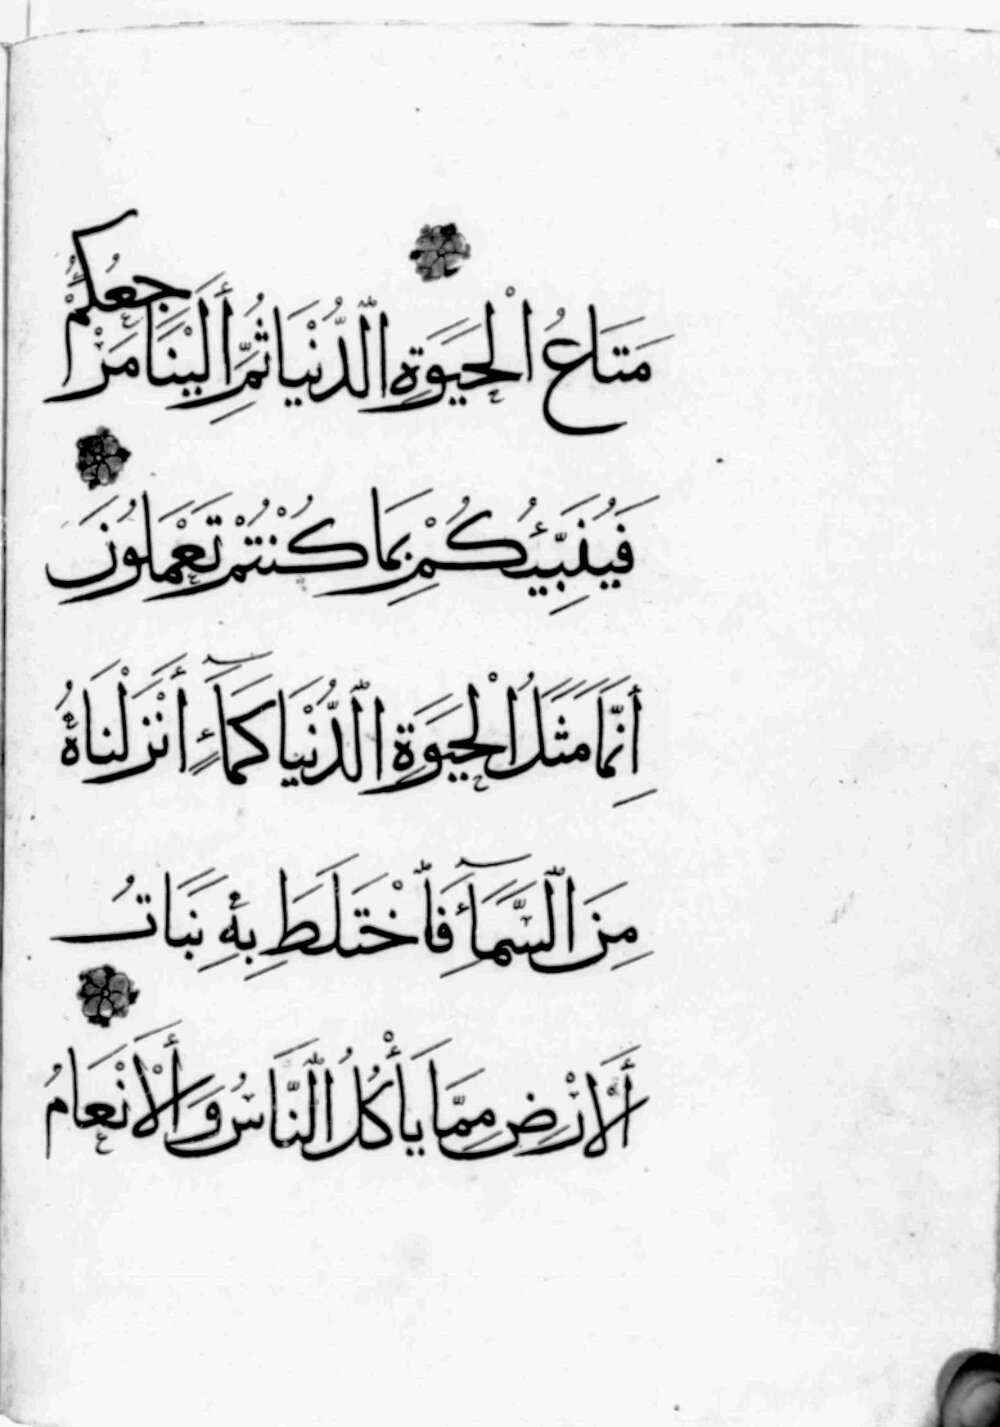 مَتَاعُ الْحَيَوةِ الدُّنْيَا ثُمَّ إِلَيْنَا مَرْجِعُكُمْ
فَيُنَبِّيُكُمْ بِمَا كُنْتُمْ تَعْمَلُونَ
إِنَّمَا مَثَلُ الْحَيَوةِ الدُّنْيَا كَمَآءٍ أَنْزَلْنَاهُ
مِنَ السَّمَآءِ فَاخْتَلَطَ بِهِ نَبَاتُ
الْأَرْضِ مِمَّا يَأْكُلُ النَّاسُ وَالْأَنْعَامُ